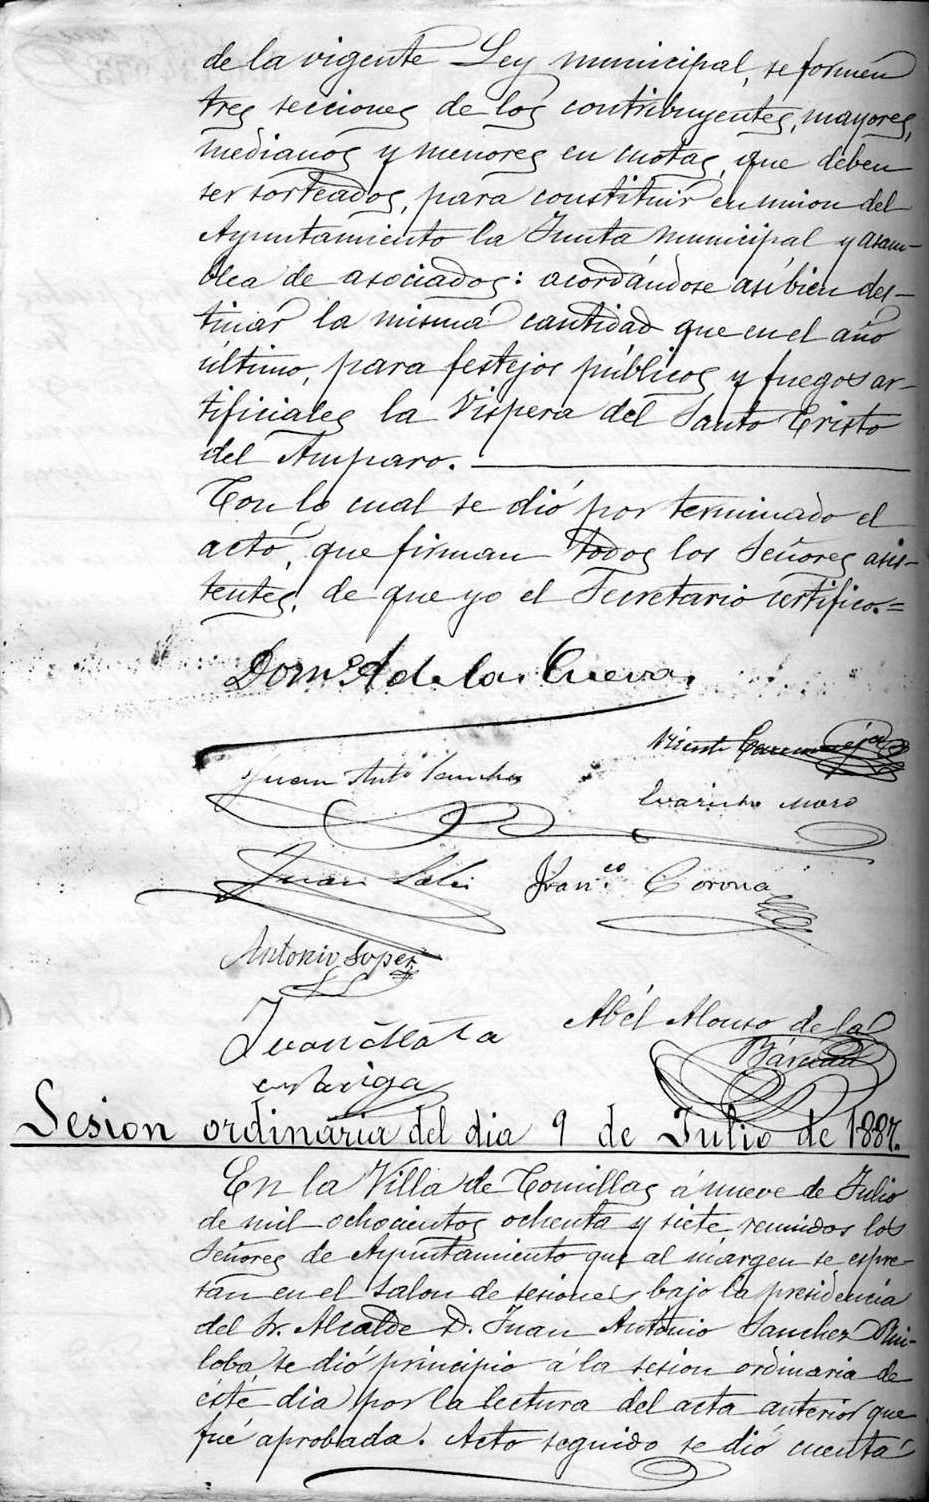 de la vigente Ley municipal, se formen
tres secciones de los contribuyentes, mayores,
medianos y menores en cuotas, que deben
ser sorteados, para constituir en union del
Ayuntamiento la Junta municipal y asam-
blea de asociados: acordándose asi bien des-
tinar la misma cantidad que en el año
último, para festejos públicos y fuegos ar-
tificiales la Vispera del Santo Cristo
del Amparo.
Con lo cual se dió por terminado el
acto, que firman todos los Señores asis-
tentes, de que yo el Secretario certifico.=
Domº A de la Cueva.
Vicente
Juan Antº Sanchez
Evaristo Moro
Juan
Franco. Corona
Antonio Lopez
Abél Alonso de la
Bárcena
Juan
Sesion ordinaria del dia 9 de Julio de 1887.
En la Villa de Comillas á nueve de Julio
de mil ochocientos ochenta y siete reunidos los
Señores de Ayuntamiento que al margen se espre-
san en el salon de sesiones bajo la presidencia
del Sr. Alcalde D. Juan Antonio Sanchez Rui-
loba se dió principio á la sesion ordinaria de
éste dia por la lectura del acta anterior que
fué aprobada. Acto seguido se dió cuenta